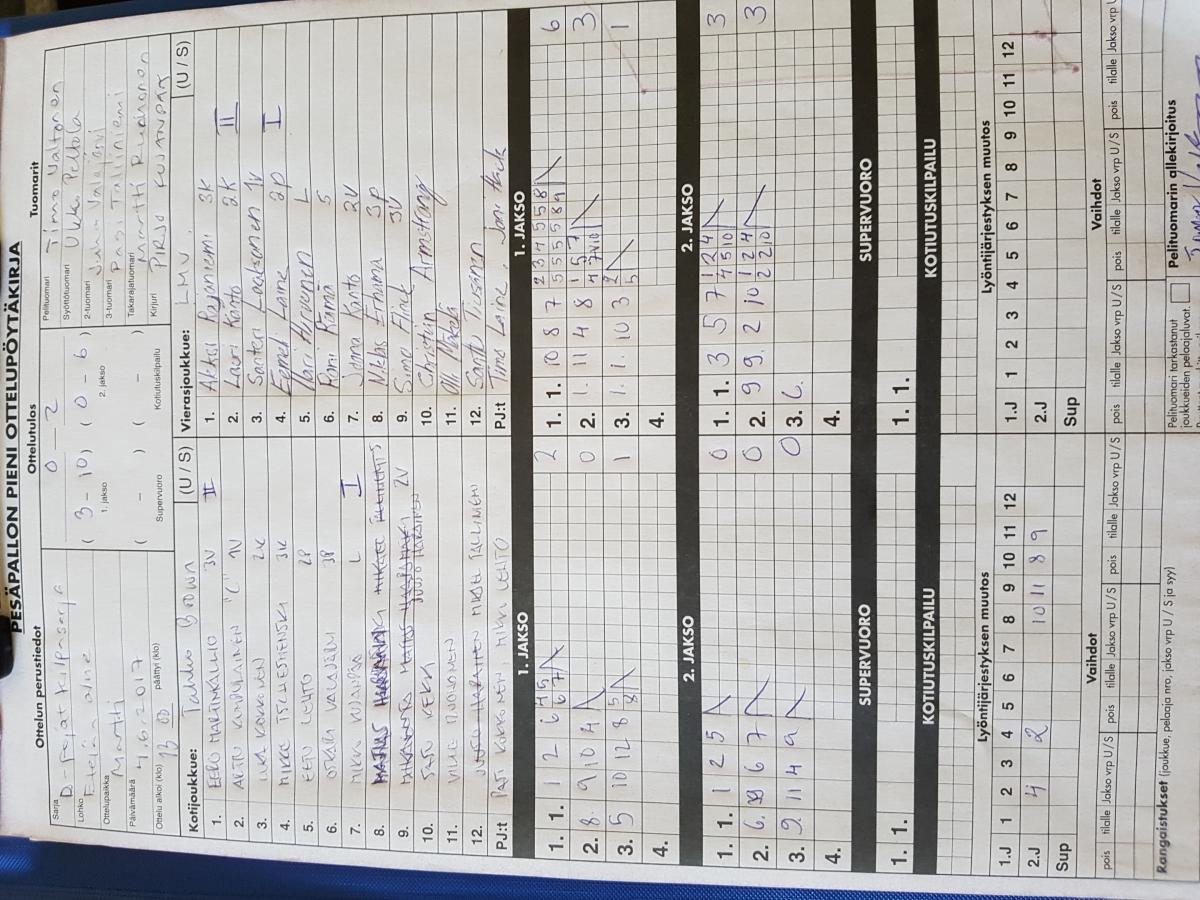 PESÄPALLON PIENI OTTELUPÖYTÄKIRJA
Ottelun perustiedot
Ottelutulos
Tuomarit
Sarja
D-Pojat Kilpasarja
Lohko
Etelä
Ottelupaikka
Manttli
Päivämäärä
4.6.2017
Ottelu alkoi (klo) 13 00 päättyi (klo)
0 - 2
( 3 - 10 ) ( 0 - 6 )
1. jakso 2. jakso
( - ) ( - )
Supervuoro Kotiutuskilpailu
Pelituomari Timo Valtonen
Syöttötuomari Ukko Peltola
2-tuomari Juha Valajärvi
3-tuomari Pasi Talliniemi
Takarajatuomari Martti Ruohonen
Kirjuri PIRJO KUJANPÄÄ
Kotijoukkue: Tahko Brown (U / S)
1. EERO MARTINKALLIO 3V II
2. ARTTU KARVALAINEN "C" 1V
3. KOKKONEN 2K
4. MIKKE TSCHESTIENSKI 3K
5. EETU LEHTO 2P
6. OTKALI VALAJÄRVI 3P
7. MIKKO KUJANPÄÄ L I
8.
9. JUUSO 2V
10. SATU KEKKI
11. VILLE RUOHONEN
12. MIKAEL TALLINIEMI
PJ:t PASI KOKKONEN, MIKA LEHTO
Vierasjoukkue: LMV (U / S)
1. Akseli Pyjäniemi 3K
2. Lauri Kanto 2K II
3. Santeri Laaksonen 1V
4. Eemeli Laine 2P I
5. Hirvonen L
6. Rami Rämä S
7. Joona Kanto 2V
8. Niklas Erhama 3P
9. Simo Flinck 3V
10. Christian Armstrong
11. Olli
12. Santtu Tiusanen
PJ:t Timo Laine, Jani Flinck
1. JAKSO
1. 1. 1 2 6 4 5 6 7 2
2. 8. 9 10 4 0
3. 5 10 12 8 5 8 1
4.
1. JAKSO
1. 1. 10 8 7 2 3 4 5 5 5 8 5 5 5 5 8 9 1 6
2. 1. 11 4 8 1 5 7 4 7 V10 3
3. 1. 1. 10 3 2 5 1
4.
2. JAKSO
1. 1. 1 2 5 0
2. 6. 6 7 0
3. 2 11 4 9 0
4.
2. JAKSO
1. 1. 3 5 7 1 2 4 4 5 10 3
2. 9 9. 2 10 1 2 4 2 2 10 3
3. 6.
4.
SUPERVUORO
1. 1.
SUPERVUORO
1. 1.
KOTIUTUSKILPAILU
KOTIUTUSKILPAILU
Lyöntijärjestyksen muutos
1.J 1 2 3 4 5 6 7 8 9 10 11 12
2.J 4 2 10 11 8 9
Sup
Lyöntijärjestyksen muutos
1.J 1 2 3 4 5 6 7 8 9 10 11 12
2.J
Sup
Vaihdot
pois tilalle Jakso vrp U/S pois tilalle Jakso vrp U/S pois tilalle Jakso vrp U/S
Vaihdot
pois tilalle Jakso vrp U/S pois tilalle Jakso vrp U/S pois tilalle Jakso vrp U
Rangaistukset (joukkue, pelaaja nro, jakso vrp U / S ja syy)
Pelituomari tarkastanut
joukkueiden pelaajaluvat.
Pelituomarin allekirjoitus